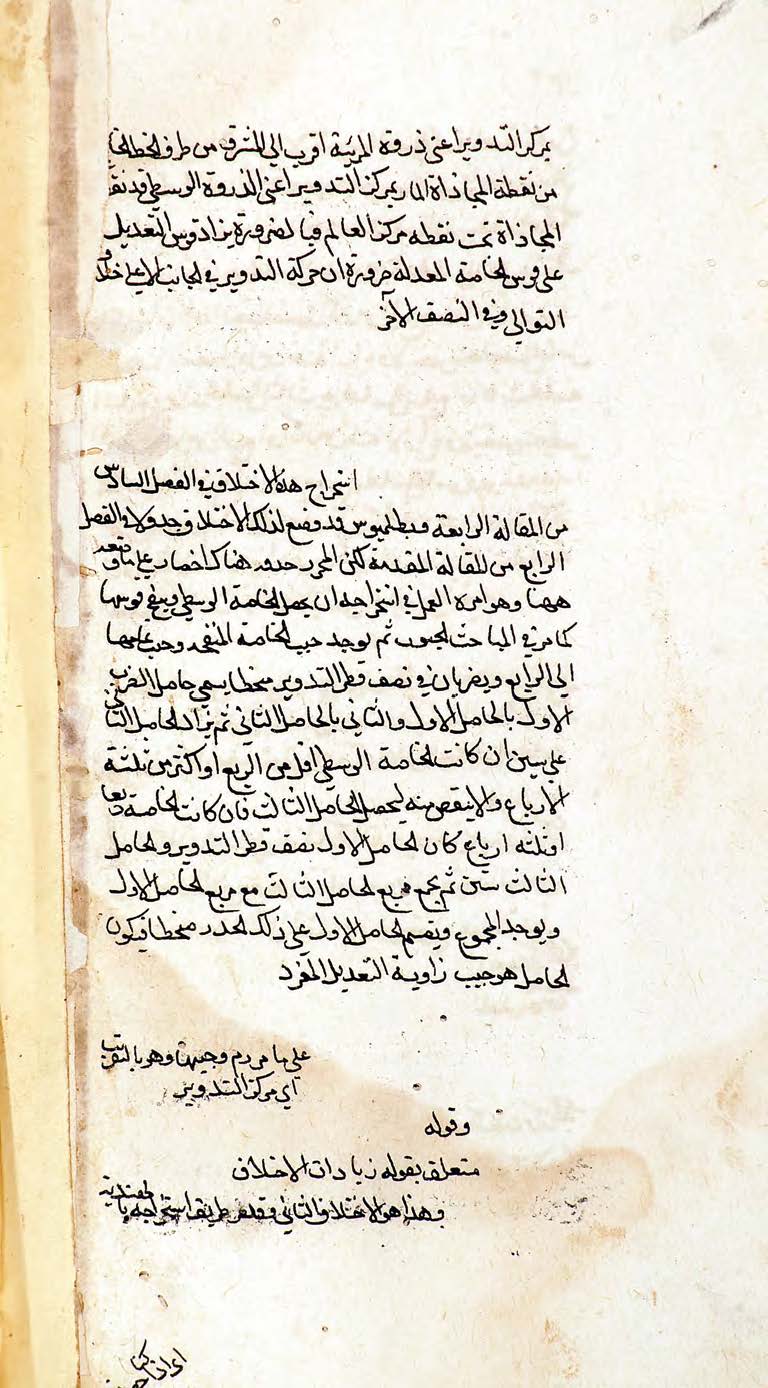 بمركز التدوير اعني ذروة المرئية اقرب الى المشرق من طرف الخط الخا
من نقطة المحاذاة المار بمركز التدوير اعني الذروة الوسطى قد نقـ
المحاذاة تحت نقطه مركز العالم فبالضرورة يزاد قوس التعديل
على قوس الخاصة المعدلة ضرورة ان حركة التدوير في الجانب الاعلى خلاف
التوالي وفي النصف الآخر
استخراج هذه الاختلاف في الفصل السادس
من المقالة الرابعة وبطلميوس قد وضع لذلك الاختلاف جدولا في الفصل
الرابع من المقالة المقدمة لكن المجرد هناك
ههنا وهو امره العمل في استخراجه ان يحصل الخاصة الوسطى ويبقى قوسها
كما مر في المباحث الجيوب ثم يوجد جيب الخاصة المنقحه وجيب تمامها
الى الرابع ويضربان في نصف قطر التدوير منحطا يسمى حاصل الضرب
الاول بالحاصل الاول والثاني بالحاصل الثاني ثم يزاد الحاصل الثاني
على ستين ان كانت الخاصة الوسطى اقل من الربع او اكثر من ثلثة
الارباع والا ينقص منه ليحصل الحاصل الثالث فان كانت الخاصة ربعا
او ثلثه ارباع كان الحاصل الاول نصف قطر التدوير والحاصل
الثالث ستين ثم يجمع مربع الحاصل الثالث مع مربع الحاصل الاول
ويوجد المجموع ويقسم الحاصل الاول على ذلك الجذر منحطا فيكون
الحاصل هو جيب زاوية التعديل المفرد
على ما مر وهو بالتقريب
اي مركز التدوير
وقوله
متعلق بقوله زيادات الاختلاف
وهذا هو الاختلاف الثاني وقد مر طريق استخراجه